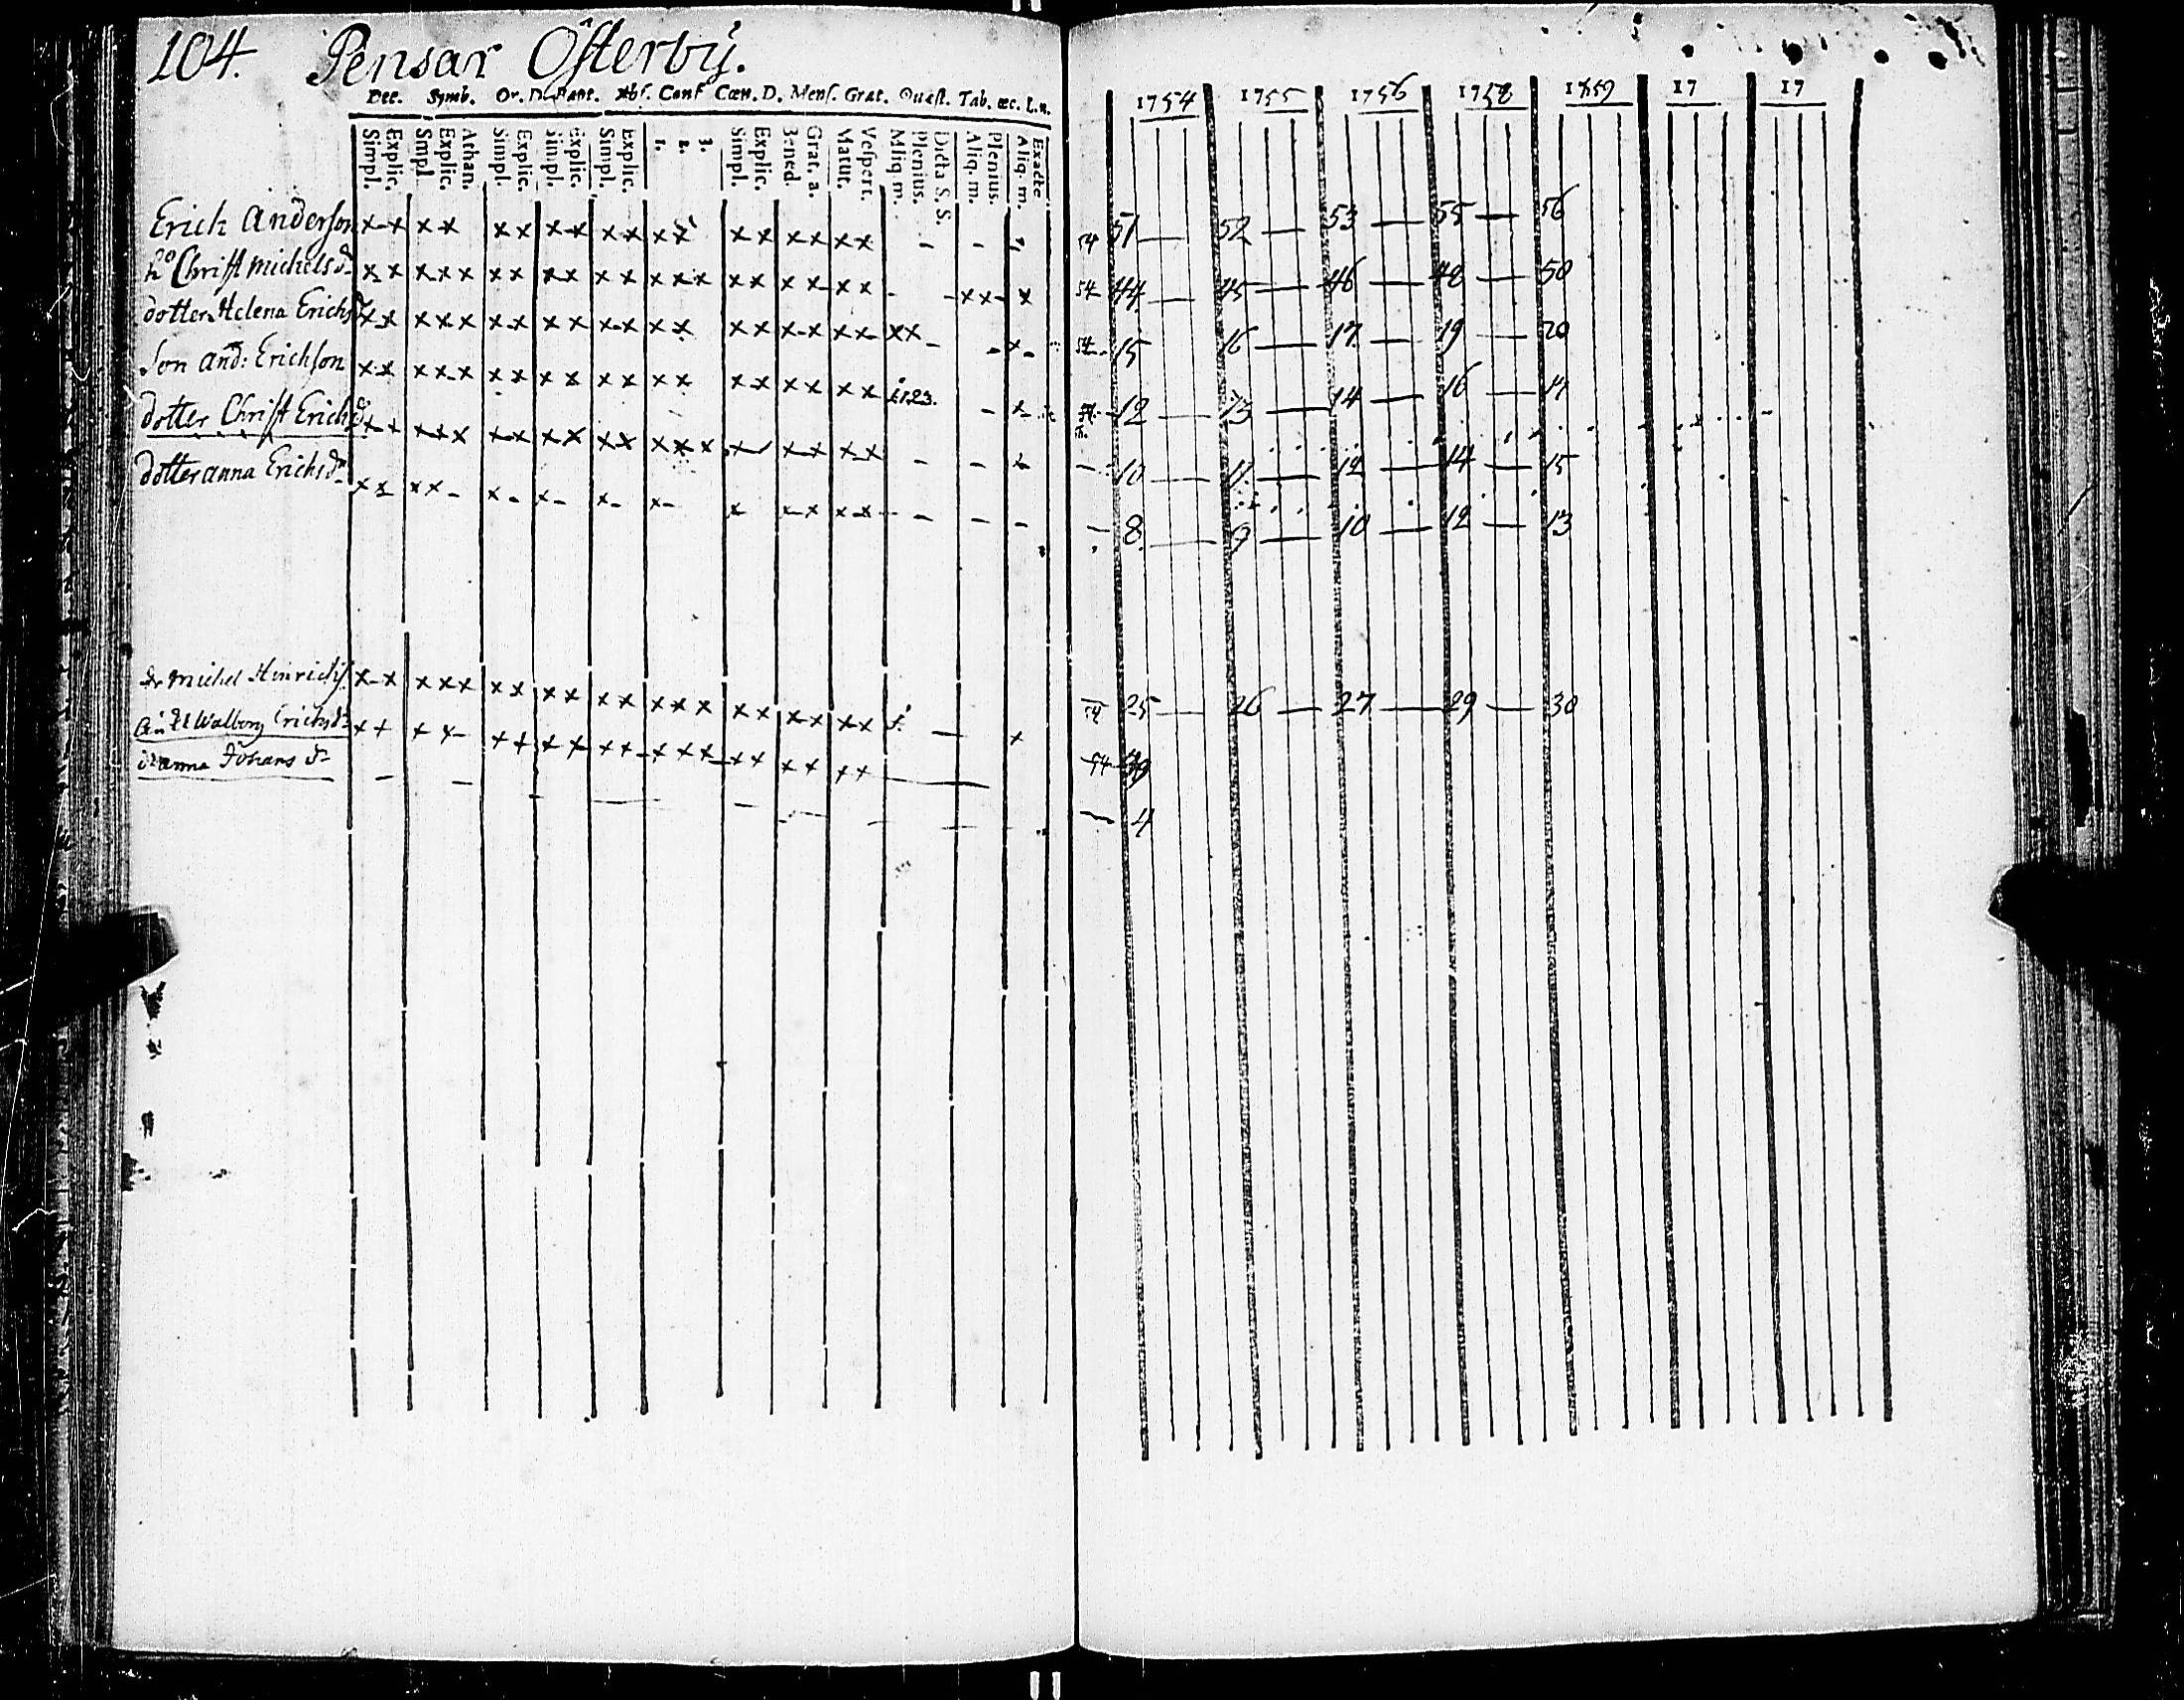 104. Pensar Österbÿ.
Dec. Symb. Or. D. Bapt. Abs. Conf Cœn. D. Mens. Grat. Quæst. Tab. œc. L.n.
Simpl. Explic. Smpl Explic. Athan. Simpl. Explic. Simpl. Explic. Simpl. Explic. 1. 2. 3. Simpl. Explic. Bened. Grat. a. Matut. Vespert. Aliq m. Plenius. Dicta S. S. Aliq. m. Plenius. Aliq. m. Exacte
1754 1755 1756 1758 1759 17 17
Erick Anderson x x x x x x x x x x x x x x x x x x - - - 54 51 — 52 — 53 — 55 — 56
ho Christ Michels dr x x x x x x x x x x x x x x x x x x x - - x x - x 54 44 — 45 — 46 — 48 — 50
dotter Helena Erichs dr x x x x x x x x x x x x x x x x x x x x x - - x - 54 15 16 — 17 — 19 — 20
Son And: Erichson x x x x x x x x x x x x x x x x x x x 1.2.3. - x - 12 — 13 — 14 — 16 —
dotter Christ Erichs dr x x x x x x x x x x x x x x x x x x x - - x - 10 — 11 — 12 — 14 — 15
dotter Anna Erichs dr x x x x - x - x - x - x - x x x x x - - - - - 8 — 9 — 10 — 12 — 13
dr Michel Hinrichs x x x x x x x x x x x x x x x x x x x x — x 54 25 — 26 — 27 — 29 — 30
Walborg Erichs dr x x x x - x x x x x x x x x x x x x x x — 54 39
Anna Johans dr - - - — - - - - — 4